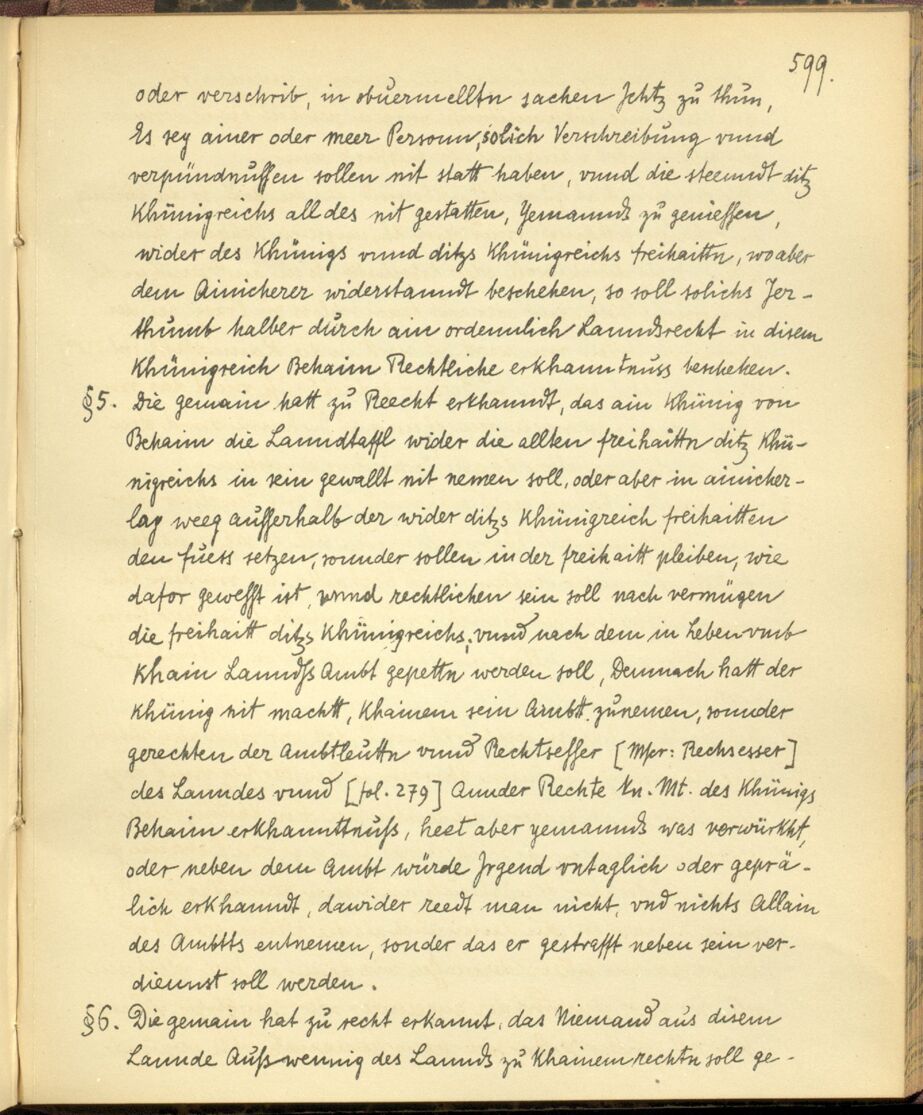 599.
oder verschrib, in obuermelltn sachen Jchtz zu thun,
Es sey ainer oder meer Personn, solich Verschreibung vnnd
verpündnussen sollen nit statt haben, vnnd die steenndt ditz
Khünigreichs all des nit gestatten, Yemannds zu geniessen,
wider des Khünigs vnnd ditzs Khünigreichs freihaittn, wo aber
dem Ainicherer widerstanndt beschehen, so soll solichs Jer-
thumb halber durch ain ordennlich Lanndsrecht in disem
Khünigreich Behaim Rechtliche erkhanntnuss beschehen.
§5. Die gemain hatt zu Reecht erkhanndt, das ain Khünig von
Behaim die Lanndtaffl wider die allten freihaittn ditz Khü-
nigreichs in sein gewallt nit nemen soll, oder aber in ainicher-
lay weeg ausserhalb der wider ditzs Khünigreich freihaitten
den fuess setzen, sonnder sollen in der freihaitt pleiben, wie
dafor gewesst ist, vnnd rechtlichen sein soll nach vermügen
die freihaitt ditzs Khünigreichs, vnnd nach dem in Leben vmb
Khain Lanndss Ambt gepettn werden soll, Demnach hatt der
Khünig nit machtt, Khainem sein Ambtt zunemen, sonnder
gerechten der Ambtleuttn vnnd Rechtsesser [Mscr: Rechsesser]
des Lanndes vnnd [fol. 279] Annder Rechte Kn. Mt. des Khünigs
Behaim erkhannttnuss, heet aber yemannds was verwürkht,
oder neben dem Ambt würde Jrgend vntaglich oder geprä-
lich erkhanndt, dawider reedt man nicht, vnd nichts Allain
des Ambtts entnemen, sonder das er gestrafft neben sein ver-
diennst soll werden.
§6. Die gemain hat zu recht erkannt, das Niemand aus disem
Lannde Auss wennig des Lannds zu Khainem rechtn soll ge-